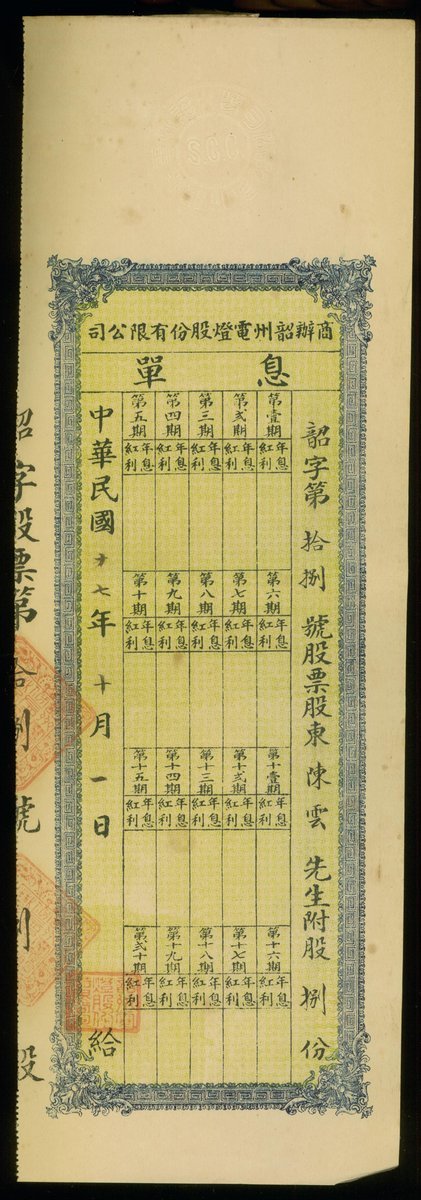 商辦韶州電燈股份有限公司
息單
韶字第拾捌號股票股東陳雲先生附股捌份
第壹期 年息紅利
第弍期 年息紅利
第三期 年息紅利
第四期 年息紅利
第五期 年息紅利
第六期 年息紅利
第七期 年息紅利
第八期 年息紅利
第九期 年息紅利
第十期 年息紅利
第十壹期 年息紅利
第十弍期 年息紅利
第十三期 年息紅利
第十四期 年息紅利
第十五期 年息紅利
第十六期 年息紅利
第十七期 年息紅利
第十八期 年息紅利
第十九期 年息紅利
第弍十期 年息紅利
中華民國十七年十月一日給
韶字股票第拾捌號捌股
S.C.C.